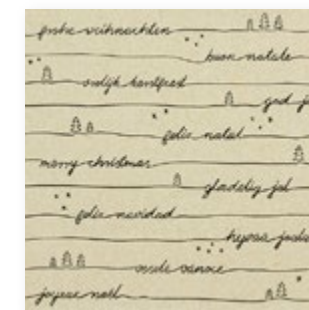 frohe weihnachten
buon natale
vrolijk kerstfeest
god j
feliz natal
merry christmas
glædelig jul
feliz navidad
hyvää joulu
joyeux noël